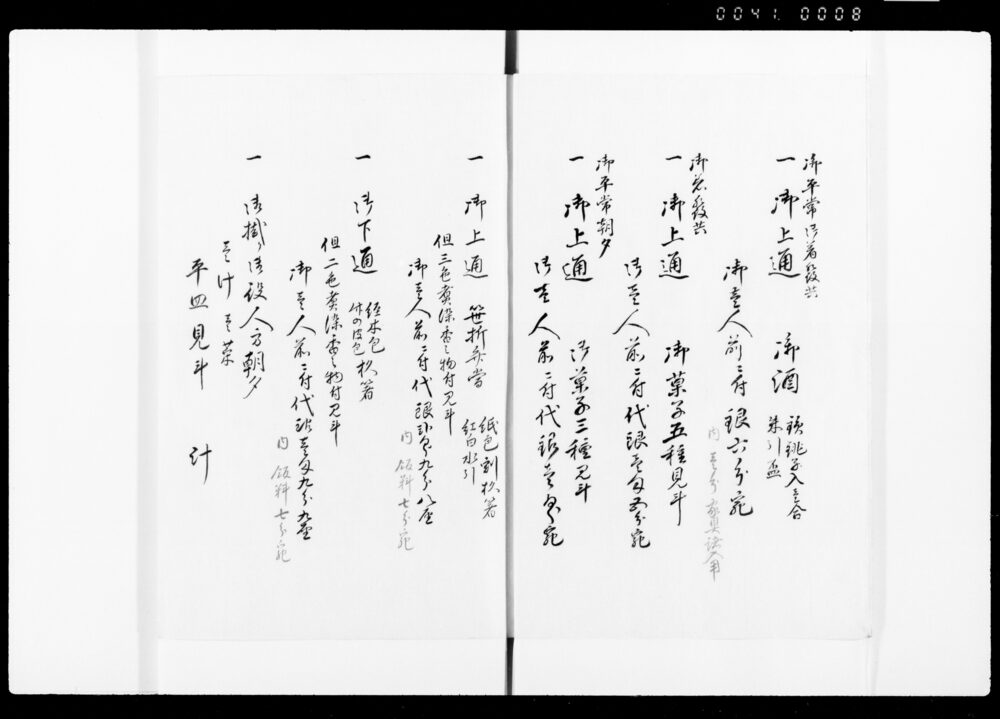 0041. 0008
御平常御着殿共
一 御上通 御酒
猪銚子入壱合
朱引盃
御壱人前ニ付 銀六分宛
内 壱分 家具諸入用
御着殿共
一 御上通 御菓子五種見斗
御壱人前ニ付代銀壱匁五分宛
御平常朝夕
一 御上通 御菓子三種見斗
御壱人前ニ付代銀壱匁宛
一 御上通 笹折弁当
紙包割杉箸
紅白水引
但三色煮染香之物付見斗
御壱人前ニ付代銀 九分八厘
内 飯料七分宛
一 御下通
経木包
竹の皮包 杉箸
但二色煮染香之物付見斗
御壱人前ニ付代銀壱匁九分九厘
内 飯料七分宛
一 御掛り御役人方朝夕
壱汁壱菜
平皿見斗 汁